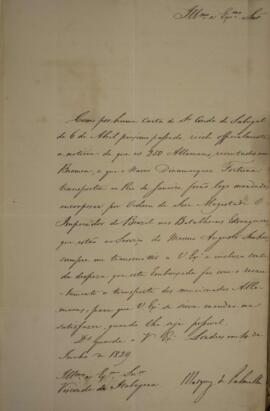 Ill.mo e Ex.mo Snr
Como por huma Carta do S.r Conde de Sabugal
de 6 de Abril proximo passado, recebi officialmente
a noticia de que os 250 Allemaens, recrutados em
Bremen, e que o Navio Dinamarquez Fortuna
transportou ao Rio de Janeiro, forão logo mandados
encorporar por Ordem de Sua Magestade O
Imperador do Brazil nos Batalhoens Estrangeiros
que estão ao Serviço do Mesmo Augusto Senhor,
cumpre me transmittir a V. Ex.ª a inclusa conta
da despeza que esta Embaixada fez com o recru-
tamento e transporte dos mencionados Alle-
maens, para que V. Ex.ª se sirva mandar ma
satisfazer, quando lhe seja possivel.
D.s guarde a V. Ex.ª Londres em 10 de
Junho de 1829
Ill.mo e Ex.mo Snr
Visconde de Itabayana
Marquez de Palmella